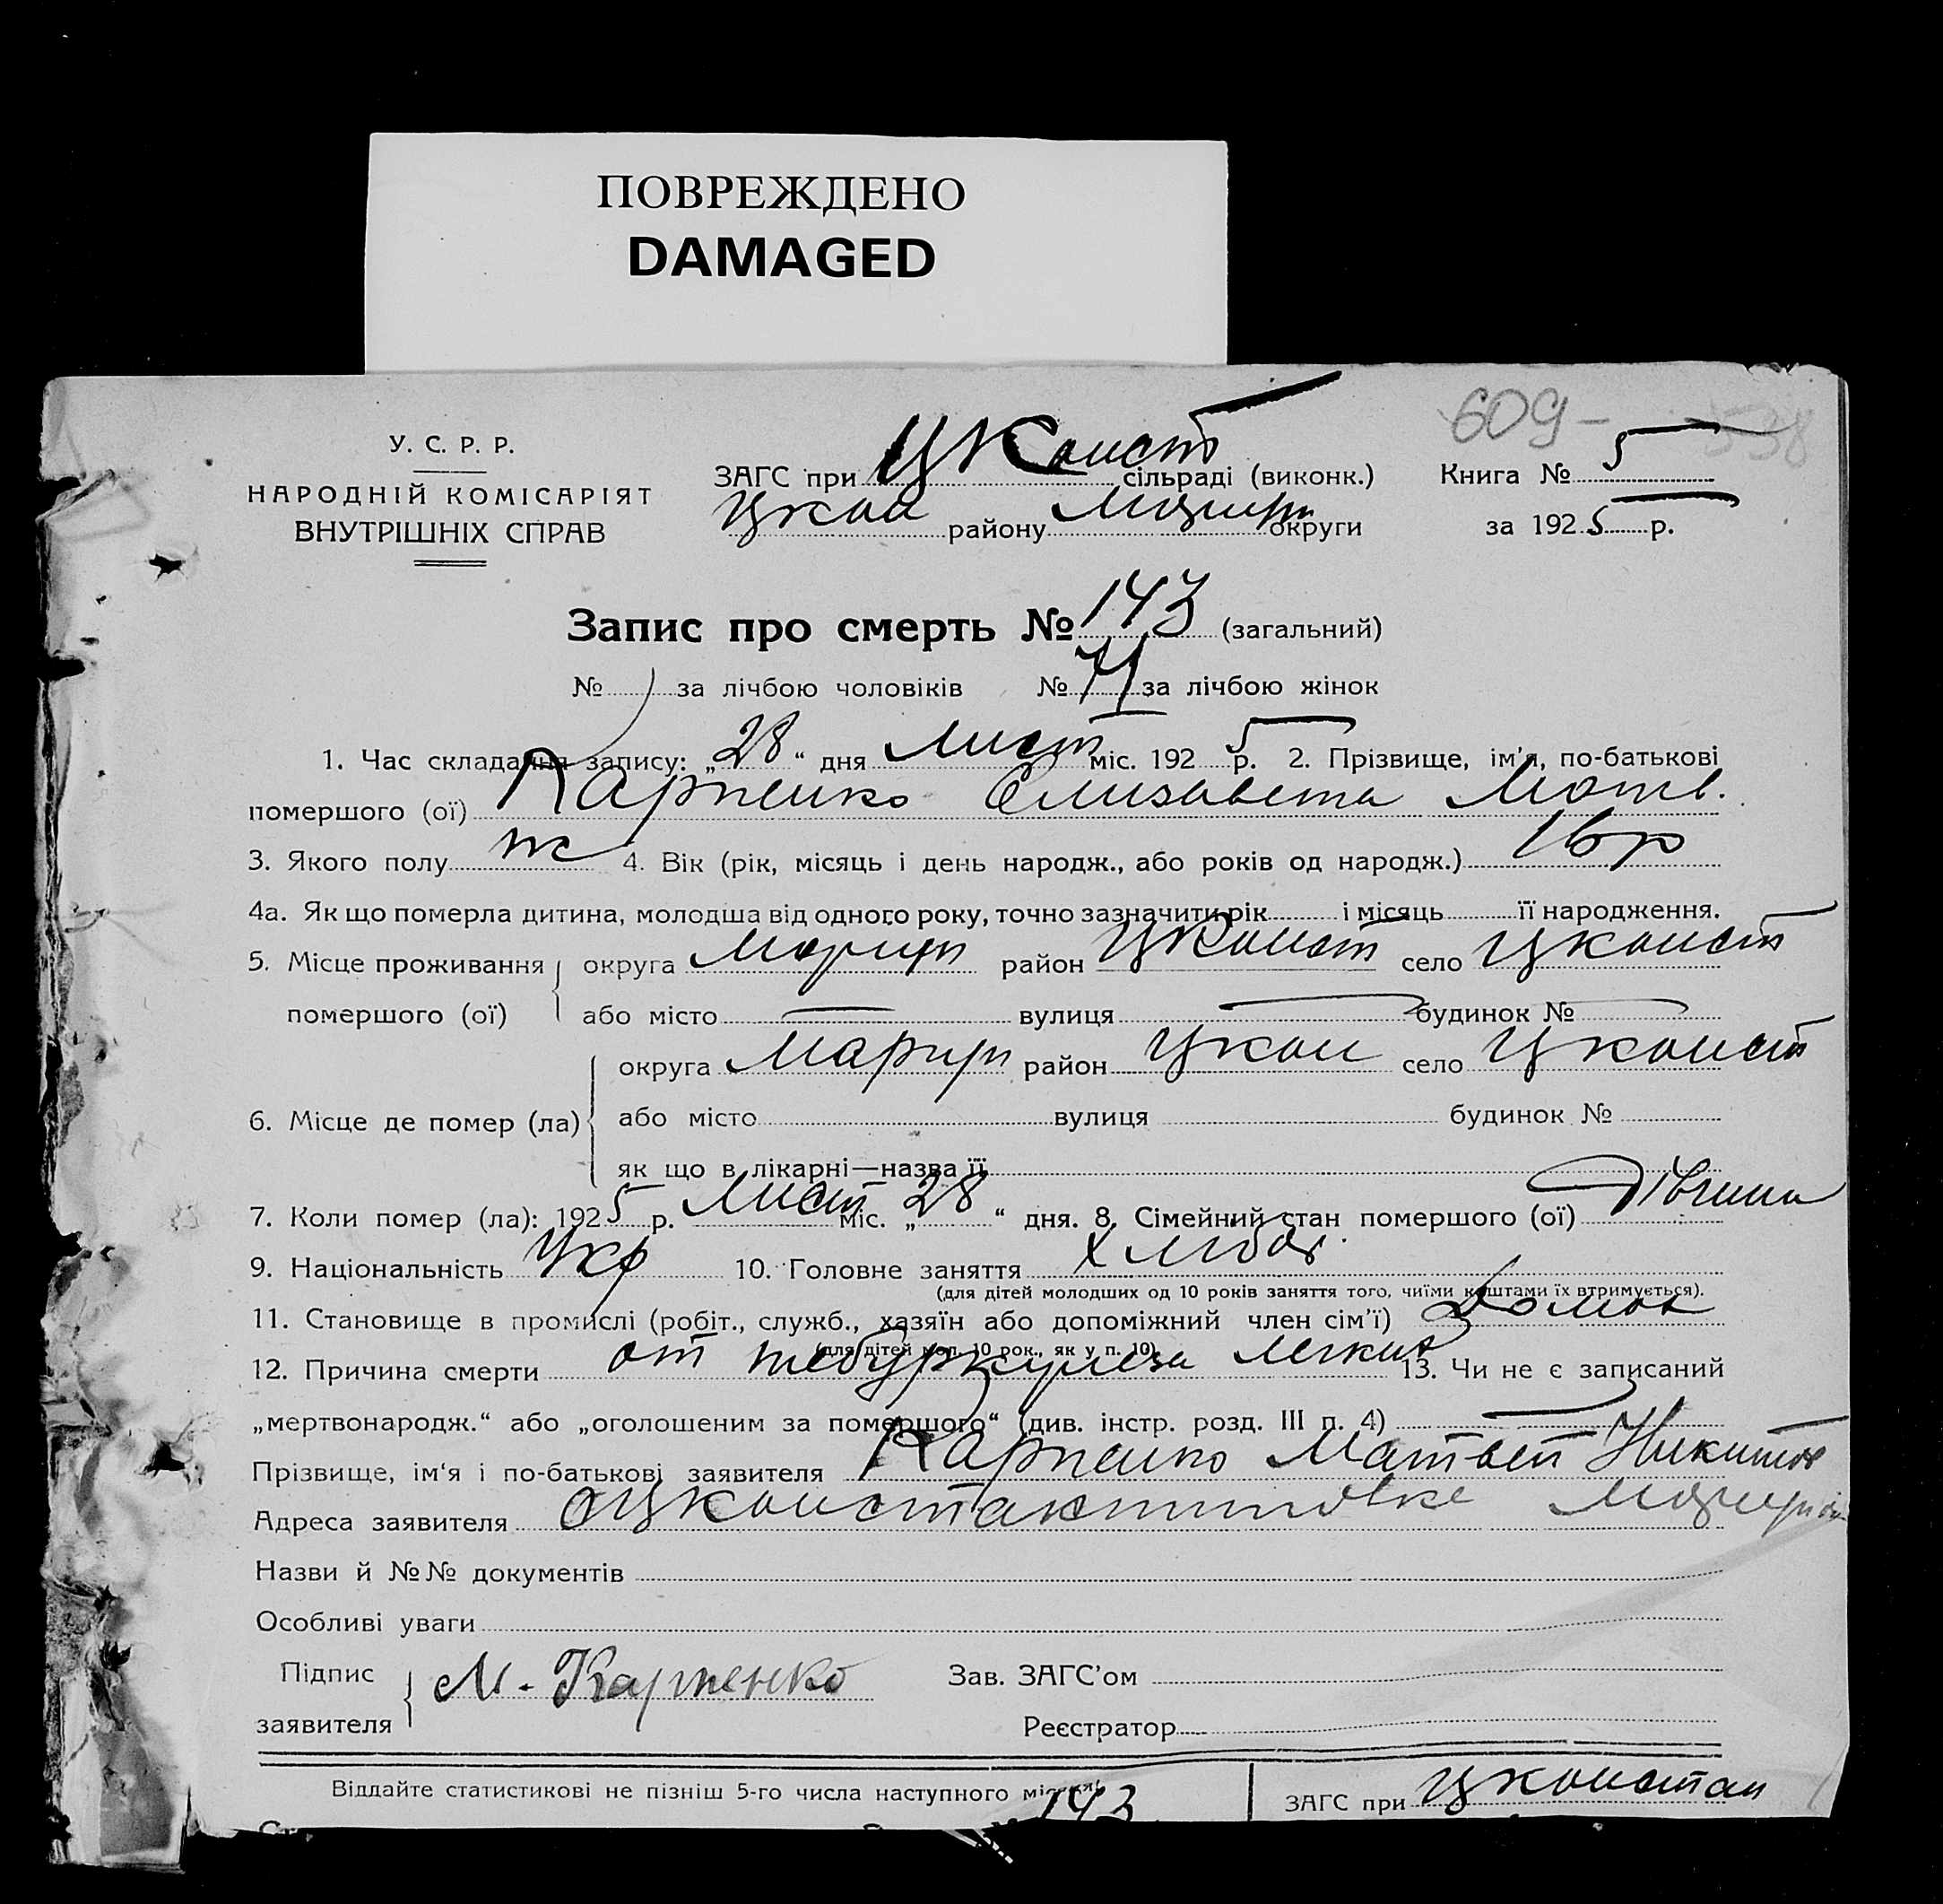 ПОВРЕЖДЕНО
DAMAGED
609-
У. С. Р. Р.
НАРОДНІЙ КОМІСАРІЯТ
ВНУТРІШНІХ СПРАВ
ЗАГС при ЦКонст сільраді (виконк.)
Цкон району округи
Книга № 5
за 1925 р.
Запис про смерть № 143 (загальний)
№ за лічбою чоловіків № 71 за лічбою жінок
1. Час складання запису: „28“ дня Лист міс. 1925 р. 2. Прізвище, ім'я, по-батькові
помершого (ої) Карпенко Елизавета Матв.
3. Якого полу ж 4. Вік (рік, місяць і день народж., або років од народж.) 16 р
4а. Як що померла дитина, молодша від одного року, точно зазначити рік і місяць її народження.
5. Місце проживання округа Маріуп район ЦКонст село Цконст
помершого (ої) або місто — вулиця — будинок № —
округа Маріуп район Цкон село Цконст
6. Місце де помер (ла) або місто вулиця будинок №
як що в лікарні—назва її
7. Коли помер (ла): 1925 р. Лист міс. „28“ дня. 8. Сімейний стан помершого (ої) Дівчина
9. Національність Укр 10. Головне заняття Хлібор.
(для дітей молодших од 10 років заняття того, чиїми коштами їх втримується).
11. Становище в промислі (робіт., служб., хазяїн або допоміжний член сім'ї)
(для дітей мол. 10 рок., як у п. 10)
12. Причина смерти от тебуркулеза легких 13. Чи не є записаний
„мертвонародж.“ або „оголошеним за помершого“ (див. інстр. розд. III п. 4) —
Прізвище, ім'я і по-батькові заявителя Карпенко Матвей Никитов
Адреса заявителя
Назви й №№ документів
Особливі уваги
Підпис
заявителя М. Карпенко
Зав. ЗАГС'ом
Реєстратор
Віддайте статистикові не пізніш 5-го числа наступного місяця
143
ЗАГС при Цконстан